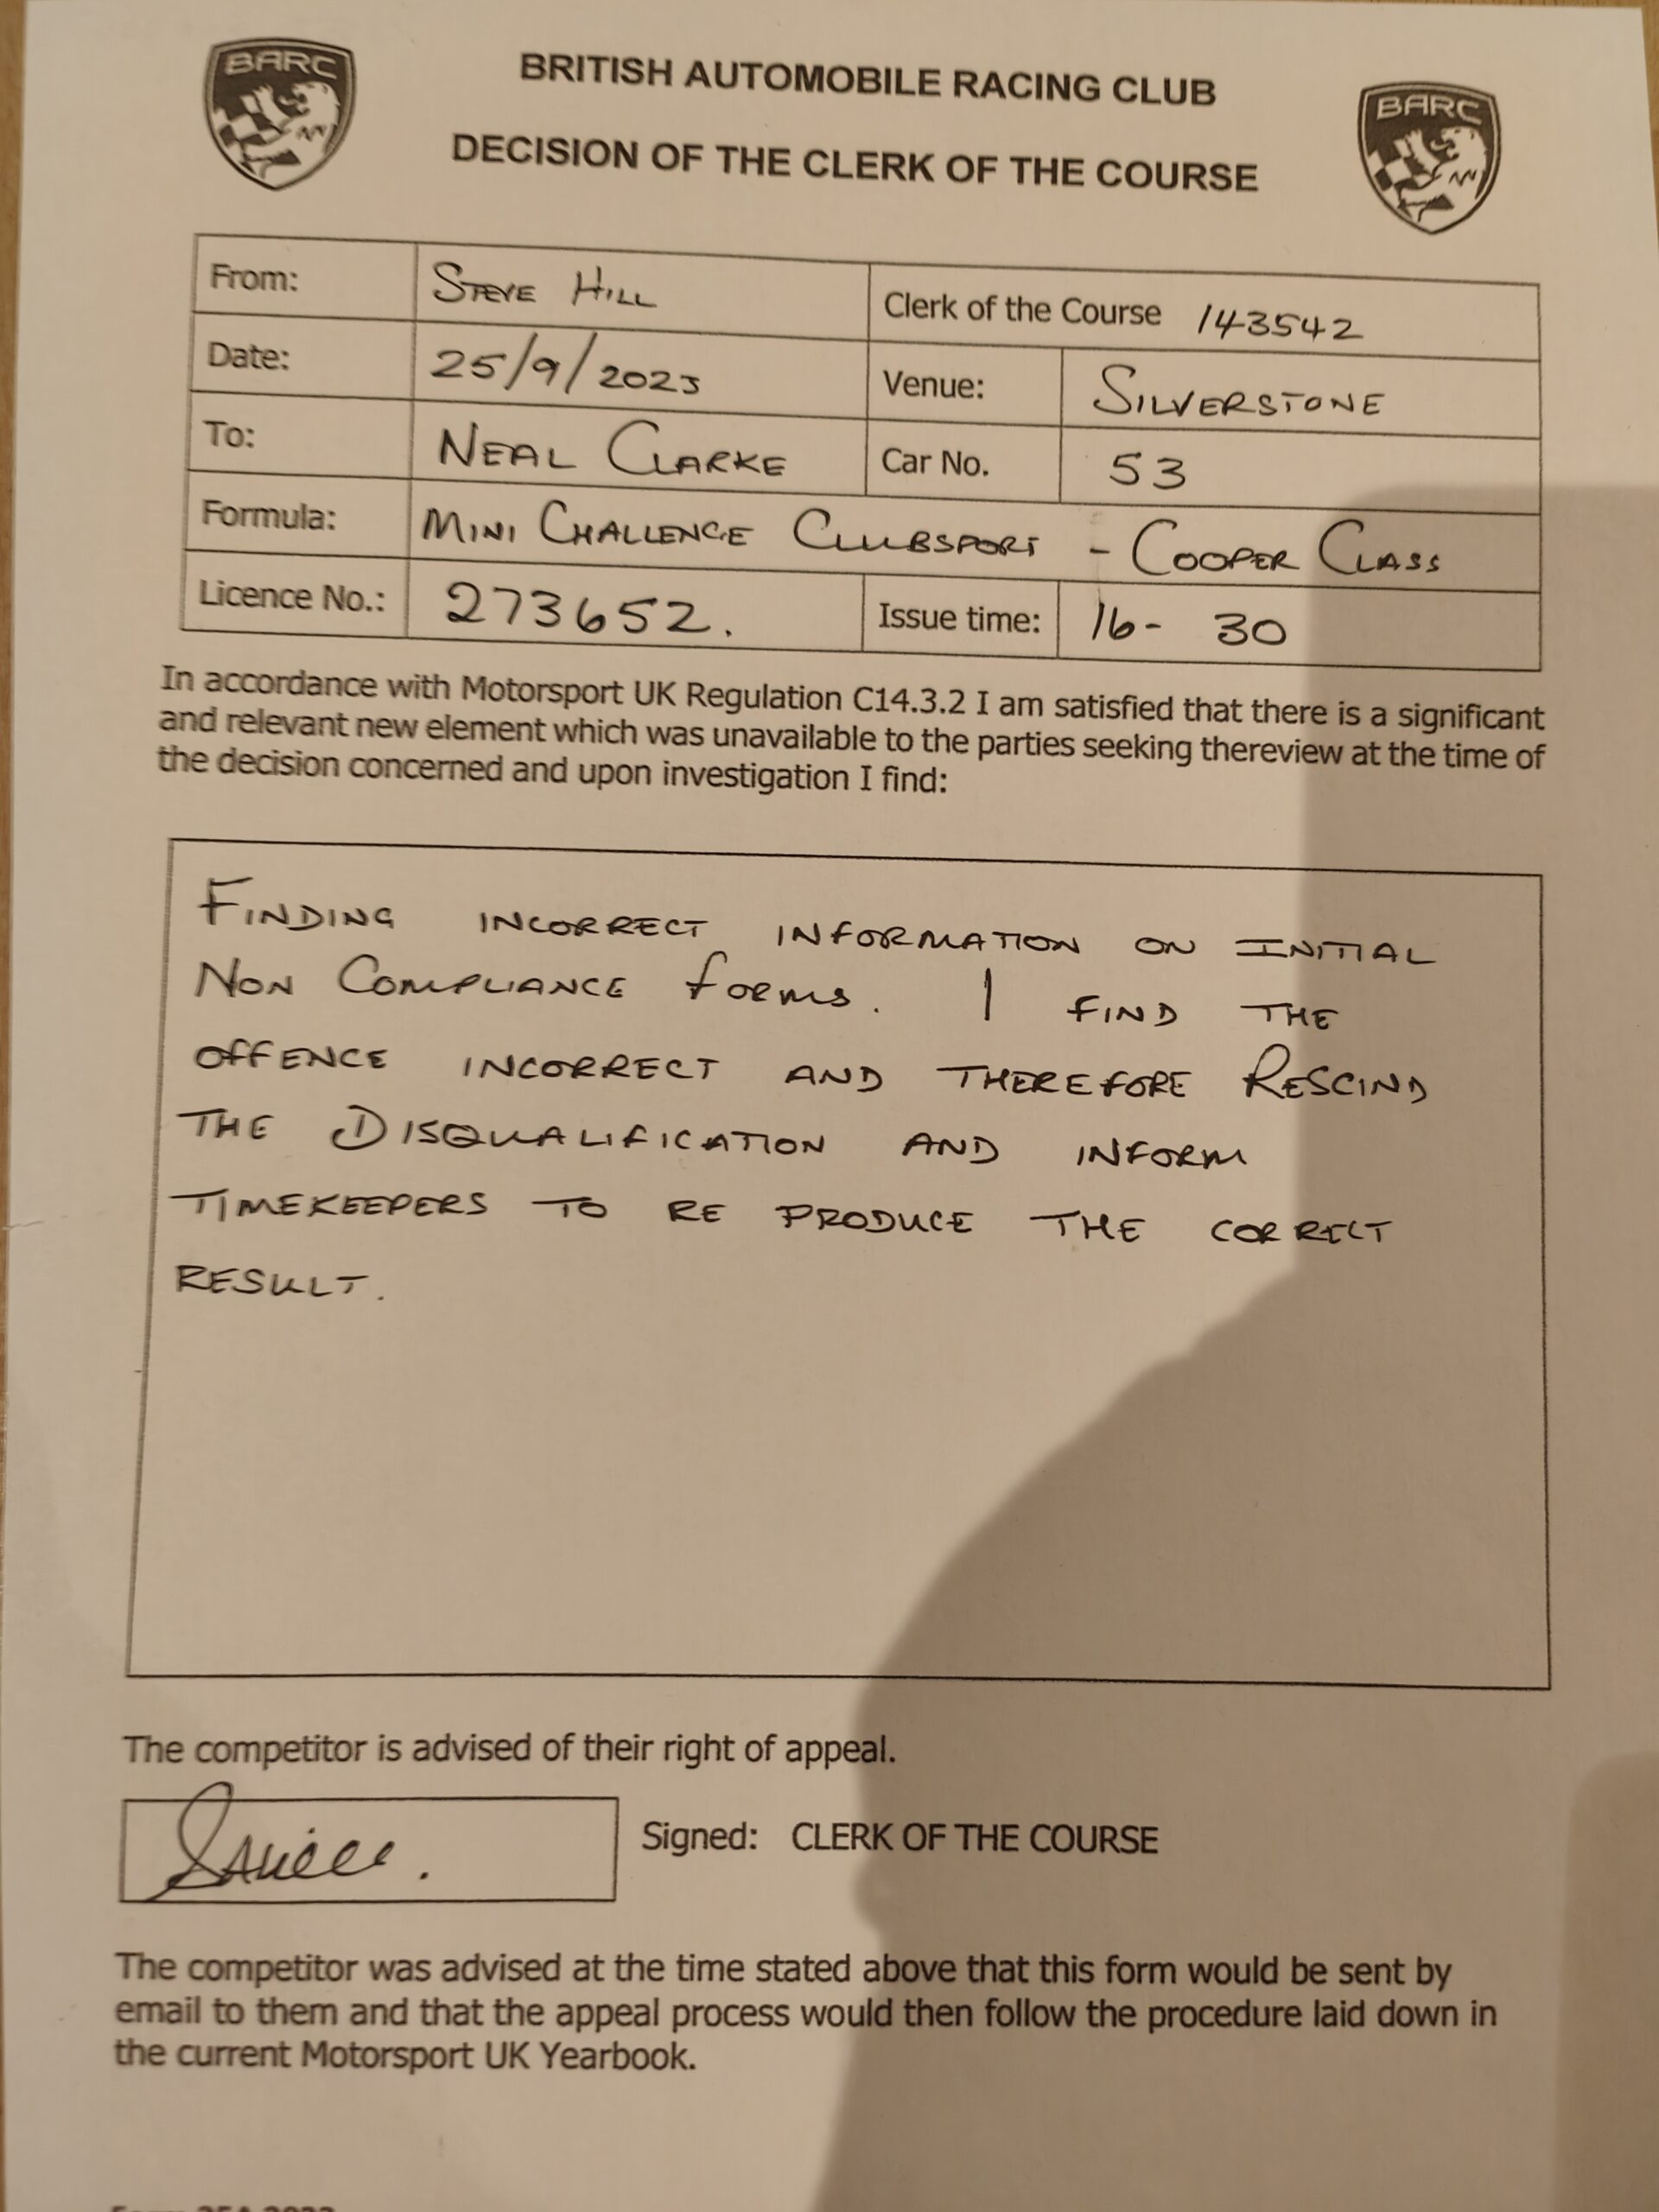 BARC
BRITISH AUTOMOBILE RACING CLUB
BARC
DECISION OF THE CLERK OF THE COURSE
From: STEVE HILL Clerk of the Course 143542
Date: 25/9/2023 Venue: SILVERSTONE
To: NEAL CLARKE Car No. 53
Formula: MINI CHALLENGE CLUBSPORT - COOPER CLASS
Licence No.: 273652. Issue time: 16- 30
In accordance with Motorsport UK Regulation C14.3.2 I am satisfied that there is a significant
and relevant new element which was unavailable to the parties seeking thereview at the time of
the decision concerned and upon investigation I find:
FINDING INCORRECT INFORMATION ON INITIAL
NON COMPLIANCE FORMS. I FIND THE
OFFENCE INCORRECT AND THEREFORE RESCIND
THE DISQUALIFICATION AND INFORM
TIMEKEEPERS TO RE PRODUCE THE CORRECT
RESULT.
The competitor is advised of their right of appeal.
Signed: CLERK OF THE COURSE
The competitor was advised at the time stated above that this form would be sent by
email to them and that the appeal process would then follow the procedure laid down in
the current Motorsport UK Yearbook.